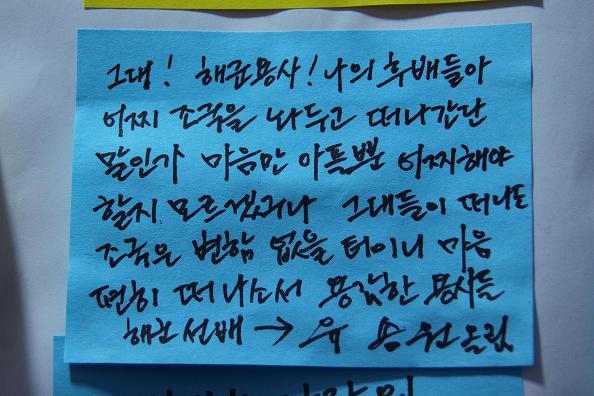 그대! 해군용사! 나의 후배들아
어찌 조국을 놔두고 떠나간단
말인가 마음만 아플뿐 어찌해야
할지 모르겠구나 그대들이 떠나도
조국은 변함 없을 터이니 마음
편히 떠나소서 용감한 용사들
해군 선배 → 유 승 원 드림